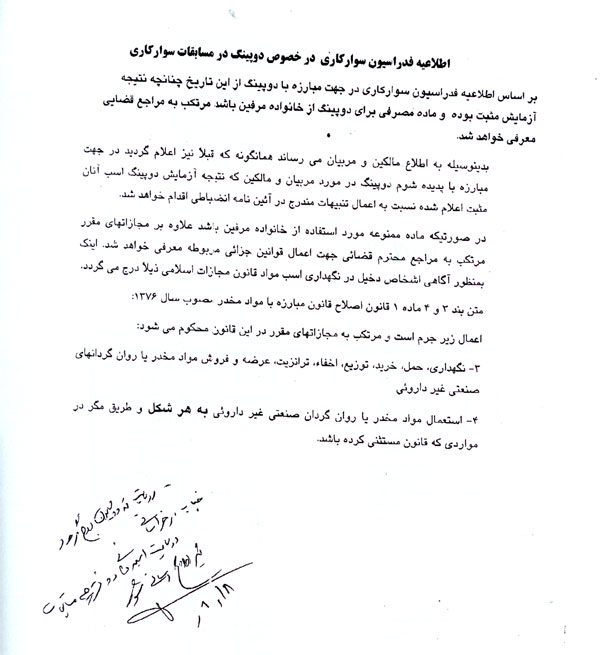 اطلاعیه فدراسیون سوارکاری در خصوص دوپینگ در مسابقات سوارکاری
بر اساس اطلاعیه فدراسیون سوارکاری در جهت مبارزه با دوپینگ از این تاریخ چنانچه نتیجه
آزمایش مثبت بوده و ماده مصرفی برای دوپینگ از خانواده مرفین باشد مرتکب به مراجع قضایی
معرفی خواهد شد.
بدینوسیله به اطلاع مالکین و مربیان می رساند همانگونه که قبلا نیز اعلام گردید در جهت
مبارزه با پدیده شوم دوپینگ در مورد مربیان و مالکین که نتیجه آزمایش دوپینگ اسب آنان
مثبت اعلام شده نسبت به اعمال تنبیهات مندرج در آئین نامه انضباطی اقدام خواهد شد.
در صورتیکه ماده ممنوعه مورد استفاده از خانواده مرفین باشد علاوه بر مجازاتهای مقرر
مرتکب به مراجع محترم قضائی جهت اعمال قوانین جزائی مربوطه معرفی خواهد شد. اینک
بمنظور آگاهی اشخاص دخیل در نگهداری اسب مواد قانون مجازات اسلامی ذیلاً درج می گردد.
متن بند ۳ و ۴ ماده ۱ قانون اصلاح قانون مبارزه با مواد مخدر مصوب سال ۱۳۷۶:
اعمال زیر جرم است و مرتکب به مجازاتهای مقرر در این قانون محکوم می شود:
۳- نگهداری، حمل، خرید، توزیع، اخفاء، ترانزیت، عرضه و فروش مواد مخدر یا روان گردانهای
صنعتی غیر داروئی
۴- استعمال مواد مخدر یا روان گردان صنعتی غیر داروئی به هر شکل و طریق مگر در
مواردی که قانون مستثنی کرده باشد.